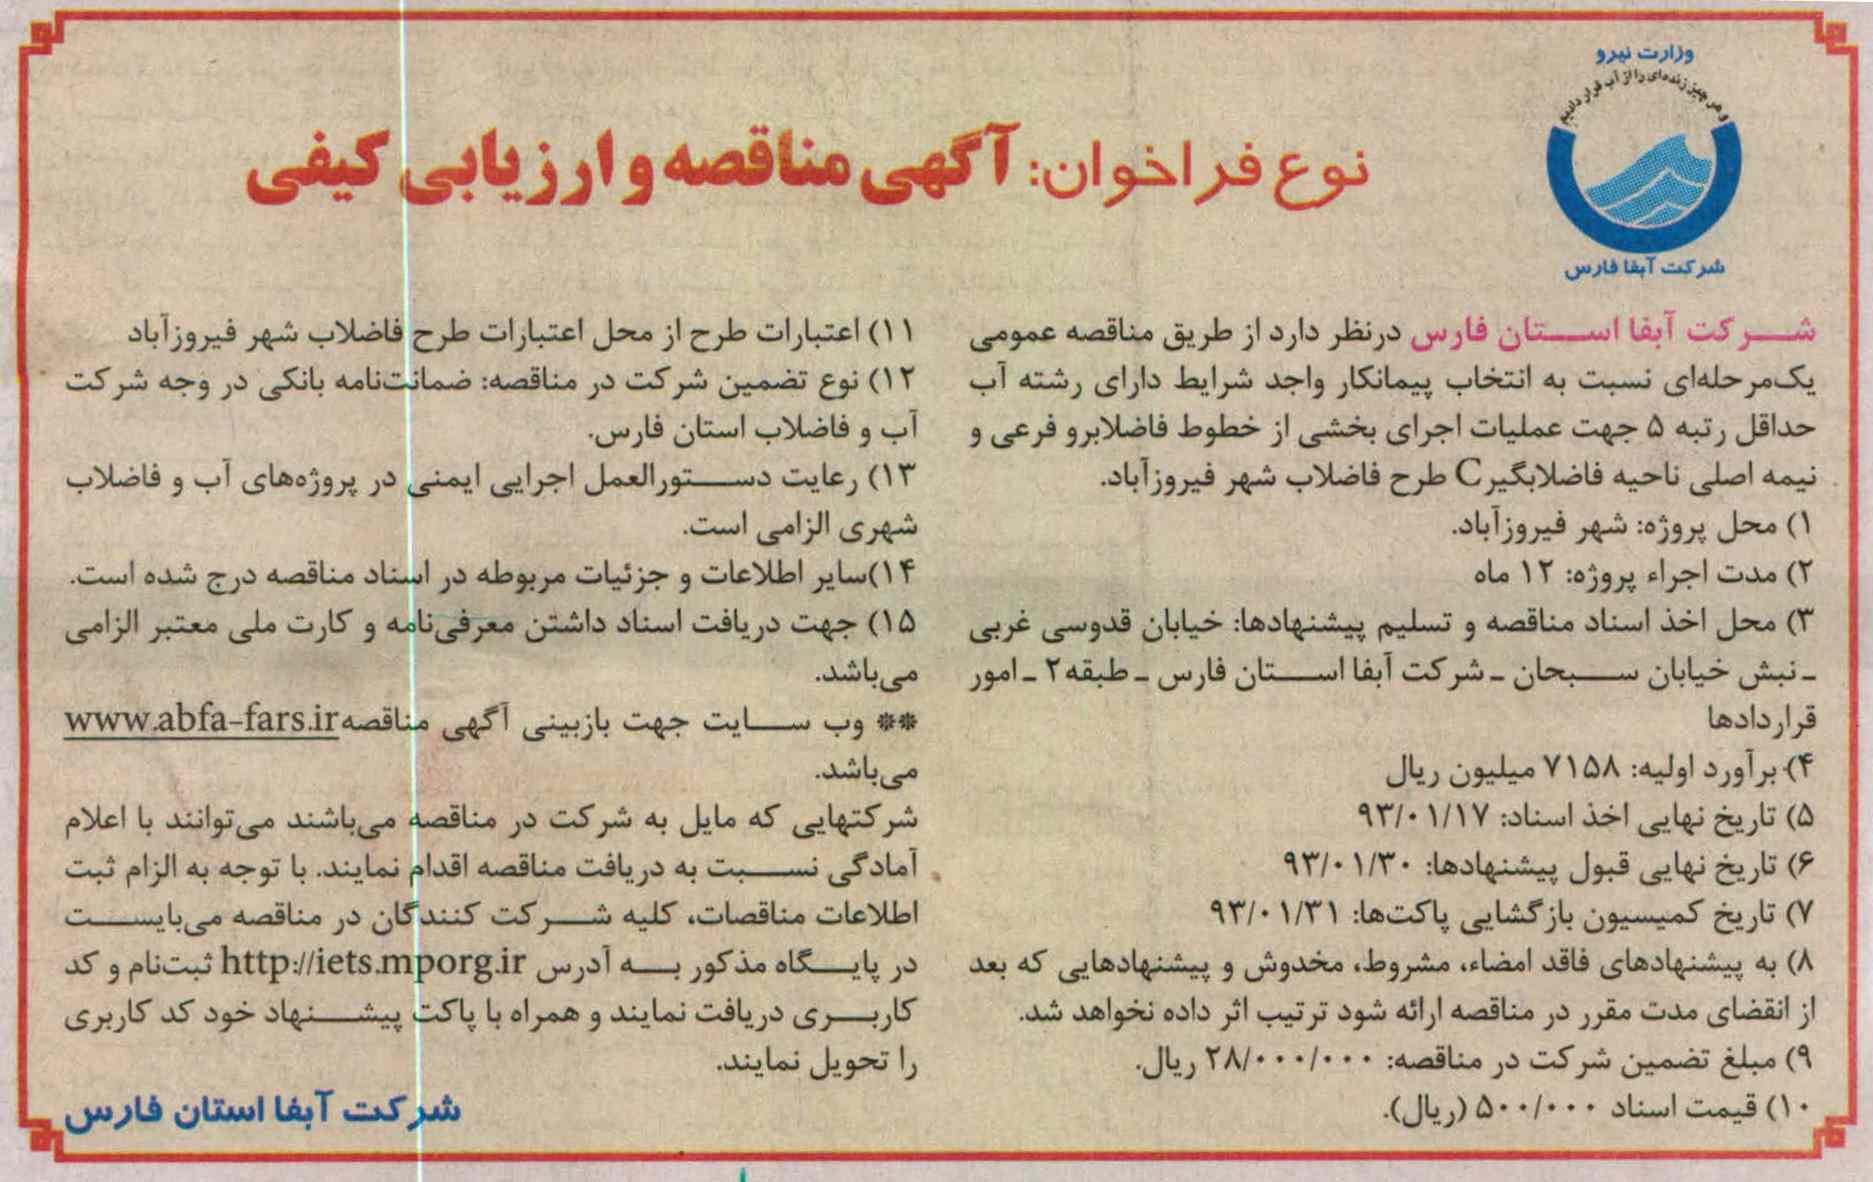 وزارت نیرو
و هر چیز زنده‌ای را از آب قرار دادیم
شرکت آبفا فارس
نوع فراخوان: آگهی مناقصه و ارزیابی کیفی
شرکت آبفا استان فارس درنظر دارد از طریق مناقصه عمومی
یک‌مرحله‌ای نسبت به انتخاب پیمانکار واجد شرایط دارای رشته آب
حداقل رتبه ۵ جهت عملیات اجرای بخشی از خطوط فاضلابرو فرعی و
نیمه اصلی ناحیه فاضلابگیر C طرح فاضلاب شهر فیروزآباد.
۱) محل پروژه: شهر فیروزآباد.
۲) مدت اجراء پروژه: ۱۲ ماه
۳) محل اخذ اسناد مناقصه و تسلیم پیشنهادها: خیابان قدوسی غربی
ـ نبش خیابان سبحان ـ شرکت آبفا استان فارس ـ طبقه ۲ ـ امور
قراردادها
۴) برآورد اولیه: ۷۱۵۸ میلیون ریال
۵) تاریخ نهایی اخذ اسناد: ۹۳/۰۱/۱۷
۶) تاریخ نهایی قبول پیشنهادها: ۹۳/۰۱/۳۰
۷) تاریخ کمیسیون بازگشایی پاکت‌ها: ۹۳/۰۱/۳۱
۸) به پیشنهادهای فاقد امضاء، مشروط، مخدوش و پیشنهادهایی که بعد
از انقضای مدت مقرر در مناقصه ارائه شود ترتیب اثر داده نخواهد شد.
۹) مبلغ تضمین شرکت در مناقصه: ۲۸/۰۰۰/۰۰۰ ریال.
۱۰) قیمت اسناد ۵۰۰/۰۰۰ (ریال).
۱۱) اعتبارات طرح از محل اعتبارات طرح فاضلاب شهر فیروزآباد
۱۲) نوع تضمین شرکت در مناقصه: ضمانت‌نامه بانکی در وجه شرکت
آب و فاضلاب استان فارس.
۱۳) رعایت دستورالعمل اجرایی ایمنی در پروژه‌های آب و فاضلاب
شهری الزامی است.
۱۴)سایر اطلاعات و جزئیات مربوطه در اسناد مناقصه درج شده است.
۱۵) جهت دریافت اسناد داشتن معرفی‌نامه و کارت ملی معتبر الزامی
می‌باشد.
** وب سایت جهت بازبینی آگهی مناقصه www.abfa-fars.ir
می‌باشد.
شرکتهایی که مایل به شرکت در مناقصه می‌باشند می‌توانند با اعلام
آمادگی نسبت به دریافت مناقصه اقدام نمایند. با توجه به الزام ثبت
اطلاعات مناقصات، کلیه شرکت کنندگان در مناقصه می‌بایست
در پایگاه مذکور به آدرس http://iets.mporg.ir ثبت‌نام و کد
کاربری دریافت نمایند و همراه با پاکت پیشنهاد خود کد کاربری
را تحویل نمایند.
شرکت آبفا استان فارس